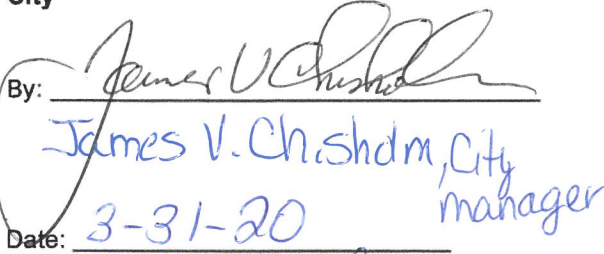 City
By: James V Chisholm
James V. Chisholm, City
manager
Date: 3-31-20